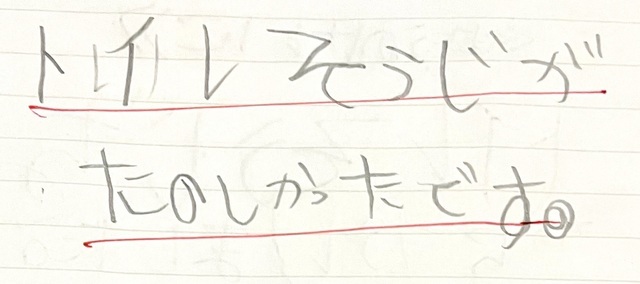 トイレそうじが
たのしかったです。